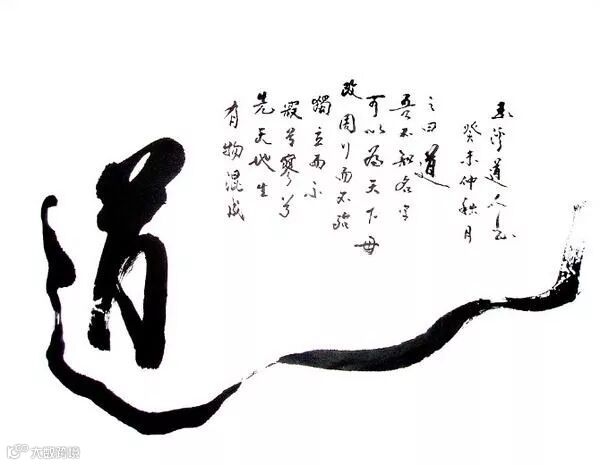 道
有物混成
先天地生
寂兮寥兮
獨立而不
改周行而不殆
可以為天下母
吾不知名字
之曰道
癸未仲秋月
道人
大數跨境